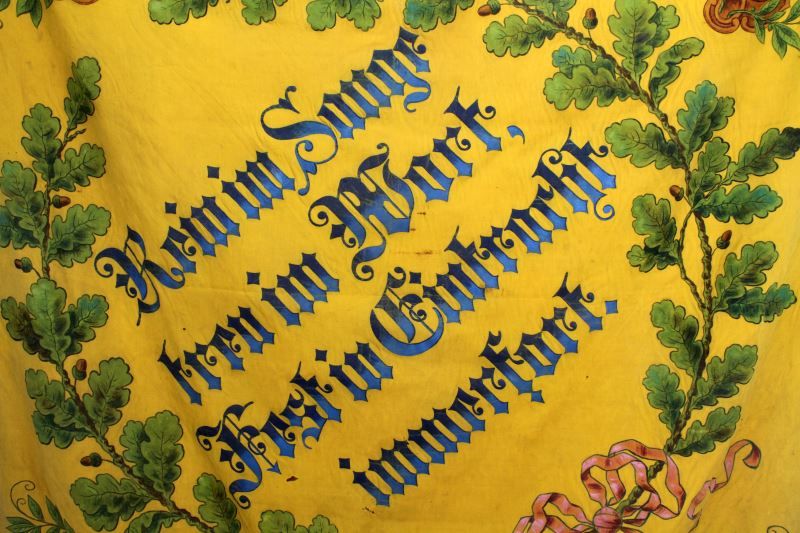 Rein im Sange
treu im Wort,
Fest in Eintracht
immerfort.